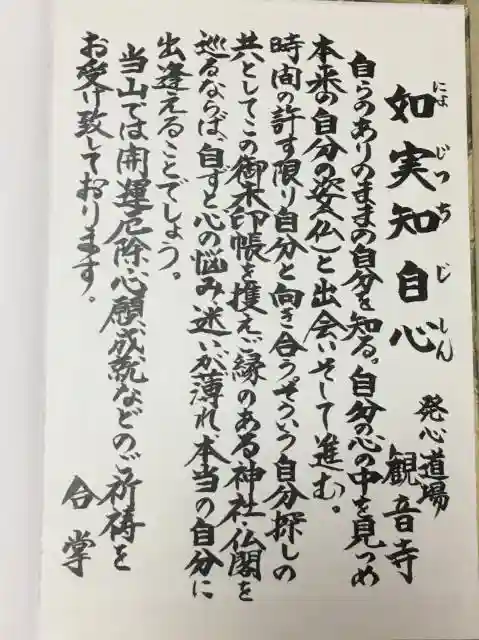 如実知自心
にょじっちじしん
発心道場
観音寺
自らのありのままの自分を知る。自分の心の中を見つめ
本来の自分の姿(仏)と出会いそして進む。
時間の許す限り自分と向き合うそういう自分探しの
共としてこの御朱印帳を携えご縁のある神社・仏閣を
巡るならば、自ずと心の悩み、迷いが薄れ、本当の自分に
出逢えることでしょう。
当山では開運厄除、心願成就などのご祈祷を
お受け致しております。
合掌